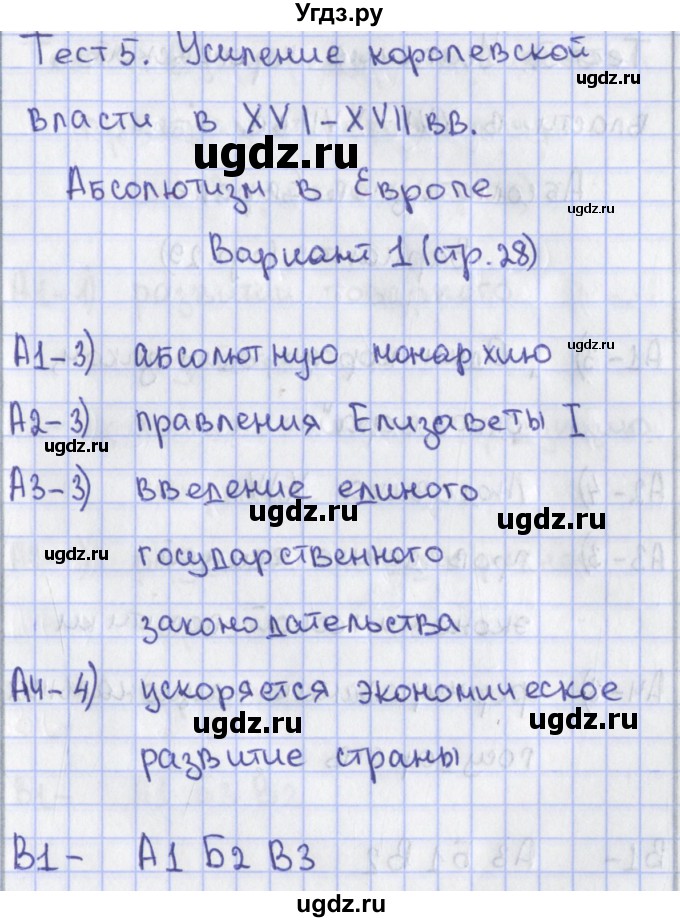 Угдз.ру
Тест 5. Усиление королевской
ugdz.ru
власти в XVI-XVII вв.
ugdz.ru
Абсолютизм в Европе
ugdz.ru
Вариант 1 (стр. 28)
А1-3) абсолютную монархию
ugdz.ru
А2-3) правления Елизаветы I
ugdz.ru
А3-3) введение единого
ugdz.ru ugdz.ru
ugdz.ru государственного
законодательства
А4-4) ускоряется экономическое
ugdz.ru ugdz.ru
развитие страны
В1- А1 Б2 В3
ugdz.ru ugdz.ru